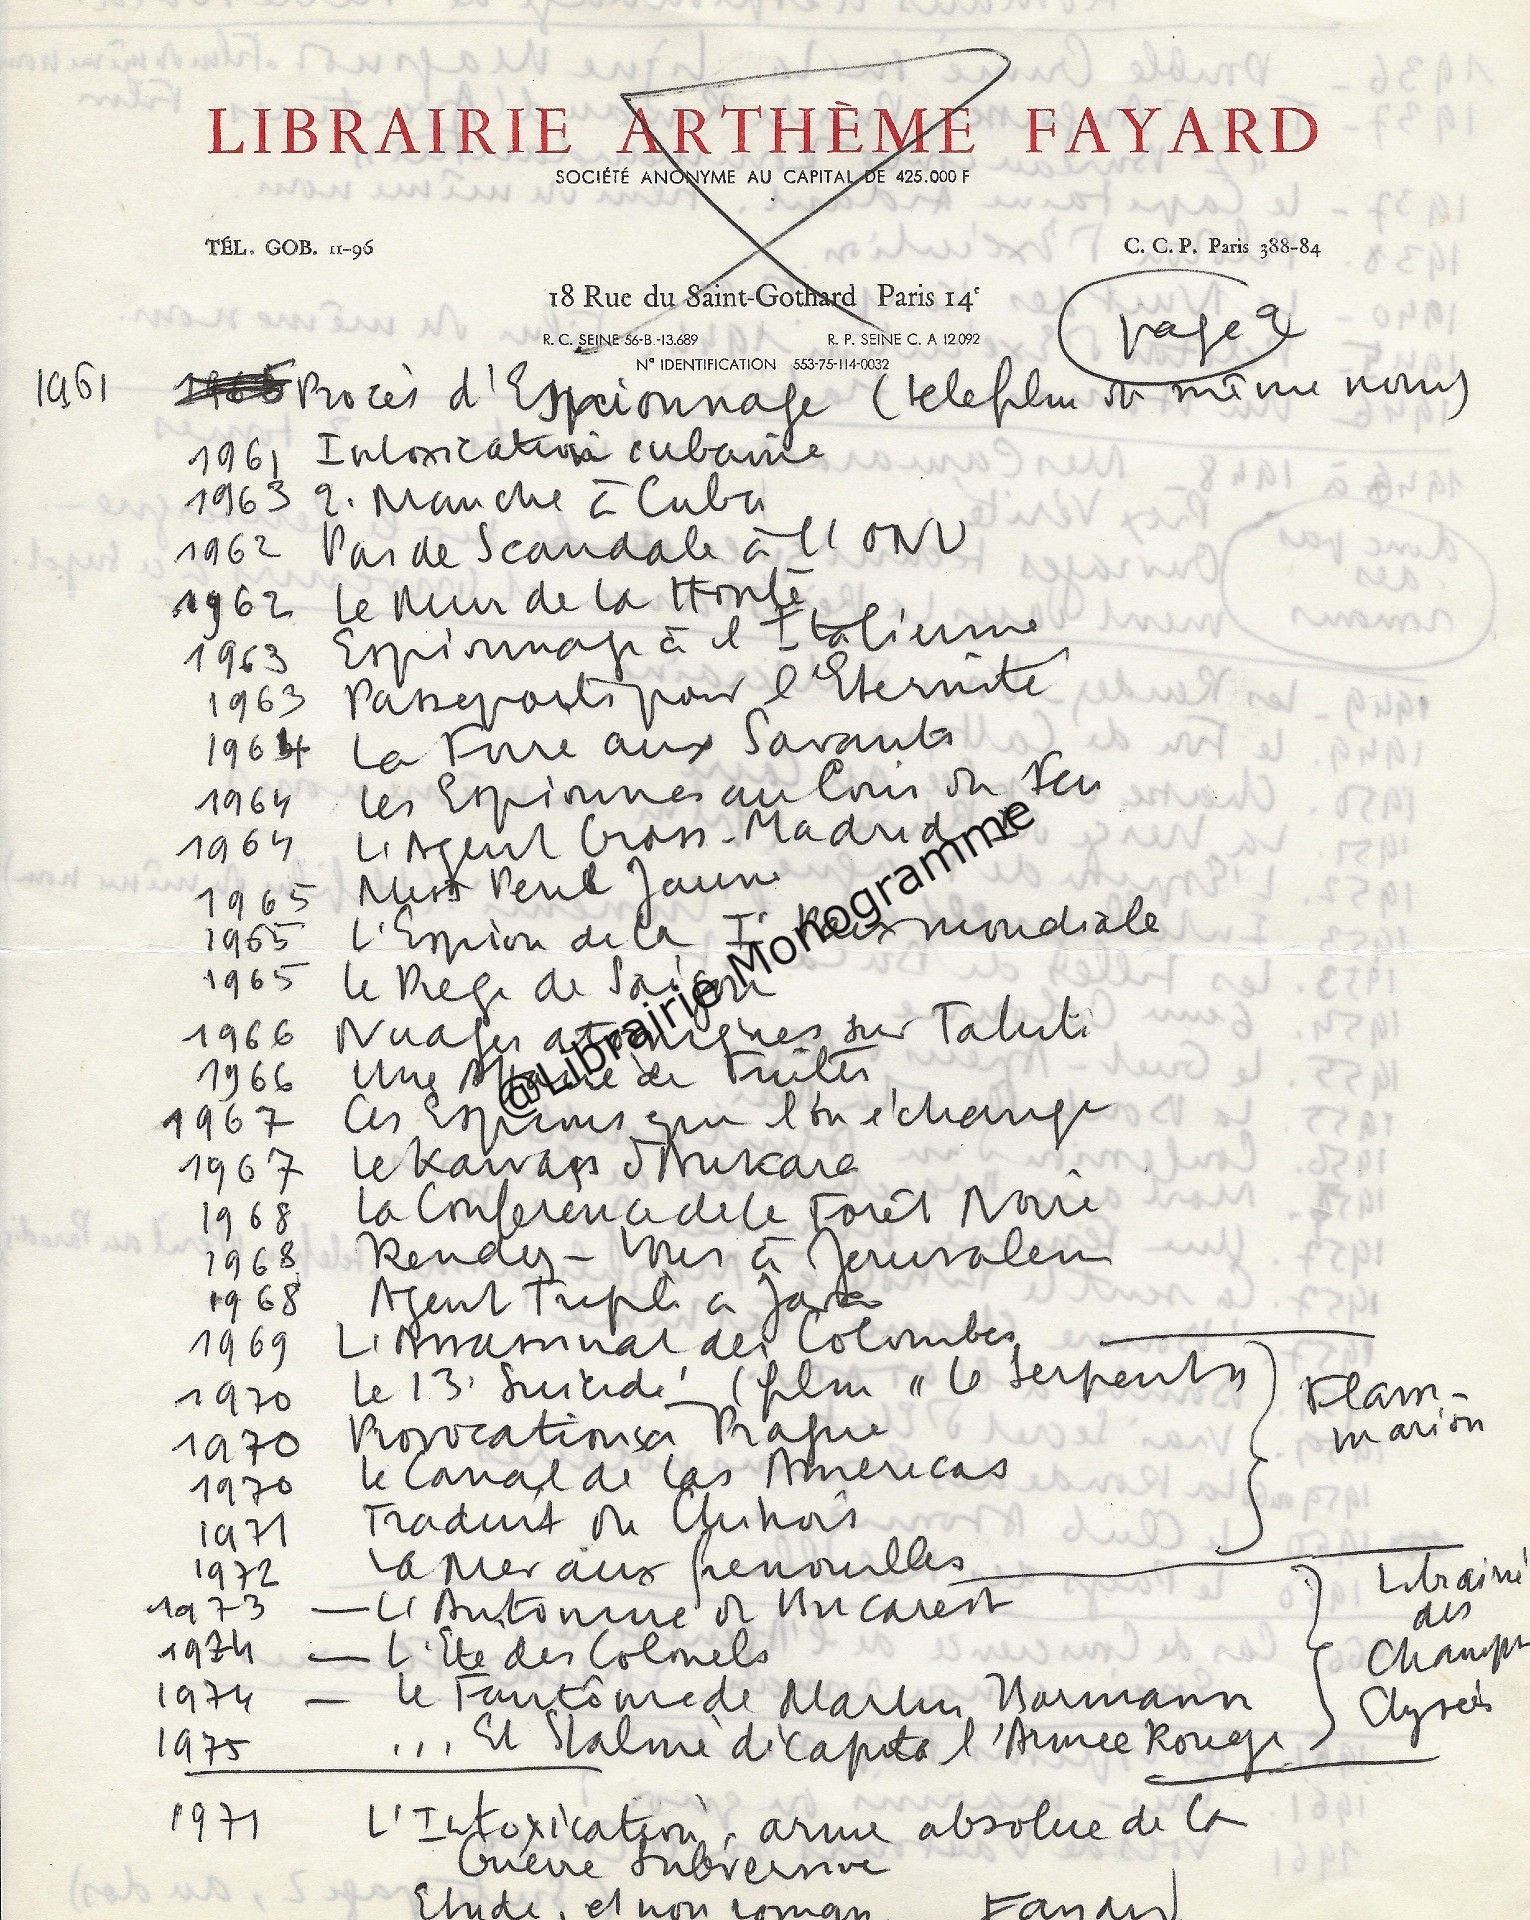 LIBRAIRIE ARTHÈME FAYARD
SOCIÉTÉ ANONYME AU CAPITAL DE 425.000 F
TÉL. GOB. 11-96
C. C. P. Paris 388-84
18 Rue du Saint-Gothard Paris 14e
R. C. SEINE 56-B.-13.689 R. P. SEINE C. A 12092
N° IDENTIFICATION 553-75-114-0032
page 2
1961 Procès d'Espionnage (telefilm du même nom)
1961 Intoxication cubaine
1963 2. Manche à Cuba
1962 Pas de Scandale à l'ONU
1962 Le Mur de la Honte
1963 Espionnage à l'Italienne
1963 Passeports pour l'Eternité
1964 La Foire aux Savants
1964 Les Espionnes au Coin du Feu
1964 L'Agent Cross-Madrid
1965 Miss Peril Jaune
1965 L'Espion de la Ie Paix mondiale
1965 Le Piege de Saigon
1966 Nuages atomiques sur Tahiti
1966 Une Affaire de Fuites
1967 Ces Espions que l'on échange
1967 Le Kawass d'Ankara
1968 La Conference de la Forêt Noire
1968 Rendez-Vous à Jerusalem
1968 Agent Triple a Java
1969 L'Assassinat des Colombes
1970 Le 13e Suicidé (film "Le Serpent")
1970 Provocations à Prague
1970 Le Canal de las Americas
1971 Traduit du Chinois
Flam-
marion
1972 La Mer aux grenouilles
1973 — L'Automne de Bucarest
1974 — L'Eté des Colonels
1974 — Le Fantôme de Martin Bormann
1975 ... Et Staline décapita l'Armée Rouge
Librairie
des
Champs
Elysées
1971 L'Intoxication, arme absolue de la
Guerre Subversive
Etude, et non roman Fayard
@Librairie Monogramme